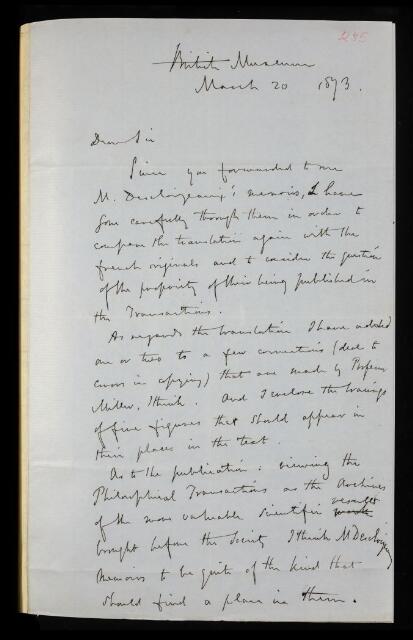 285
British Museum
March 20 1873.
Dear Sir
Since you forwarded to me
M. Descloizeaux's memoirs, I have
gone carefully through them in order to
compare the translation again with the
french originals and to consider the question
of the propriety of their being published in
the Transactions.
As regards the translation I have added
one or two to a few corrections (due to
errors in copying) that are made by Professor
Miller, I think. And I enclose the tracings
of five figures that should appear in
their places in the text.
As to the publication: viewing the
Philosophical Transactions as the Archives
of the more valuable scientific results
brought before the Society I think M Descloizeaux
Memoirs to be quite of the kind that
should find a place in them.